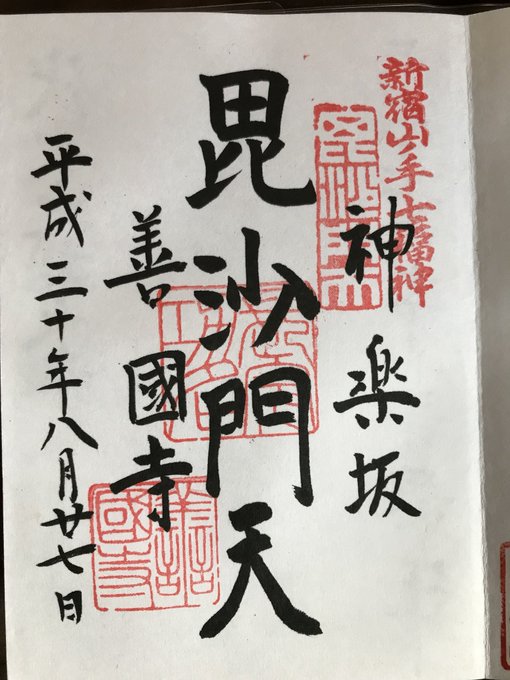 新宿山ノ手七福神
神楽坂
毘沙門天
善國寺
平成三十年八月廿七日